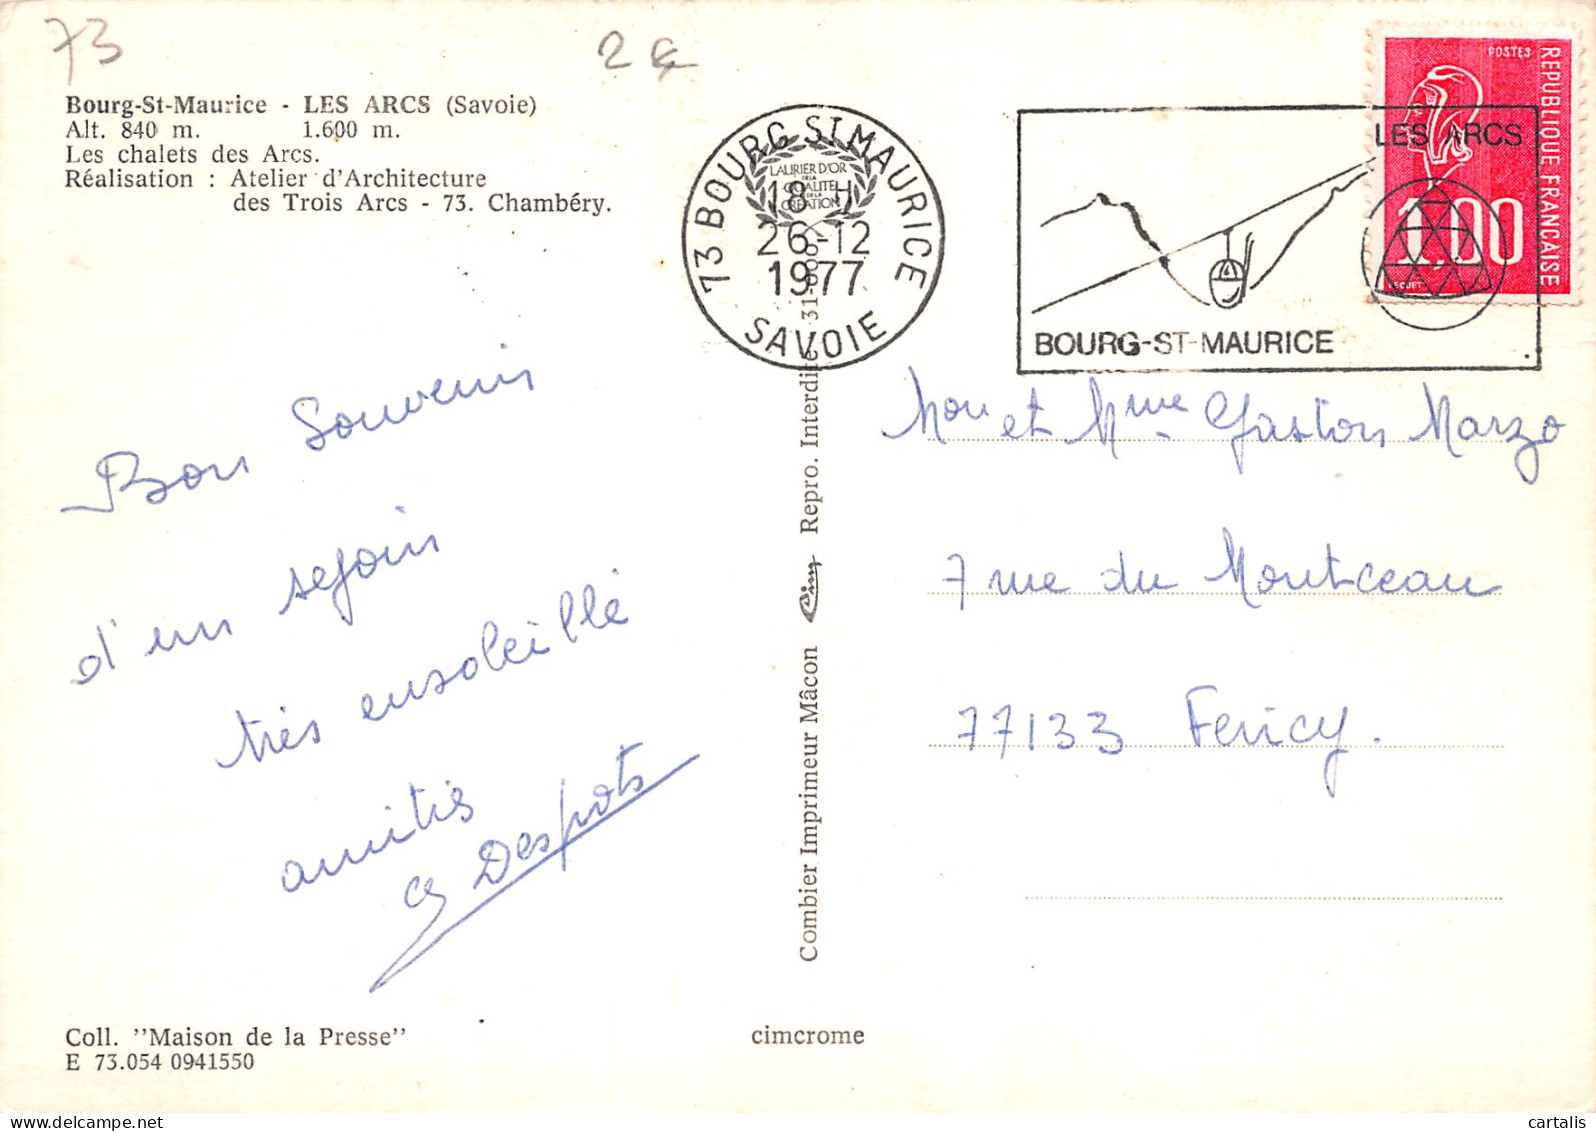 73
2€
Bourg-St-Maurice - LES ARCS (Savoie)
Alt. 840 m. 1.600 m.
Les chalets des Arcs.
Réalisation : Atelier d'Architecture
des Trois Arcs - 73. Chambéry.
73 BOURG ST MAURICE
LAURIER D'OR
DE LA
QUALITE
DE LA
CREATION
18 H
26-12
1977
SAVOIE
LES ARCS
BOURG-ST-MAURICE
POSTES
REPUBLIQUE FRANCAISE
1,00
BEQUET
Bon Souvenir
d'un sejour
très ensoleillé
amitiés
Despots
Mon et Mme Gaston Marzo
7 rue du Montceau
77133 Fericy.
Combier Imprimeur Mâcon Cim Repro. Interdite
Coll. "Maison de la Presse"
E 73.054 0941550
cimcrome
www.delcampe.net
cartalis